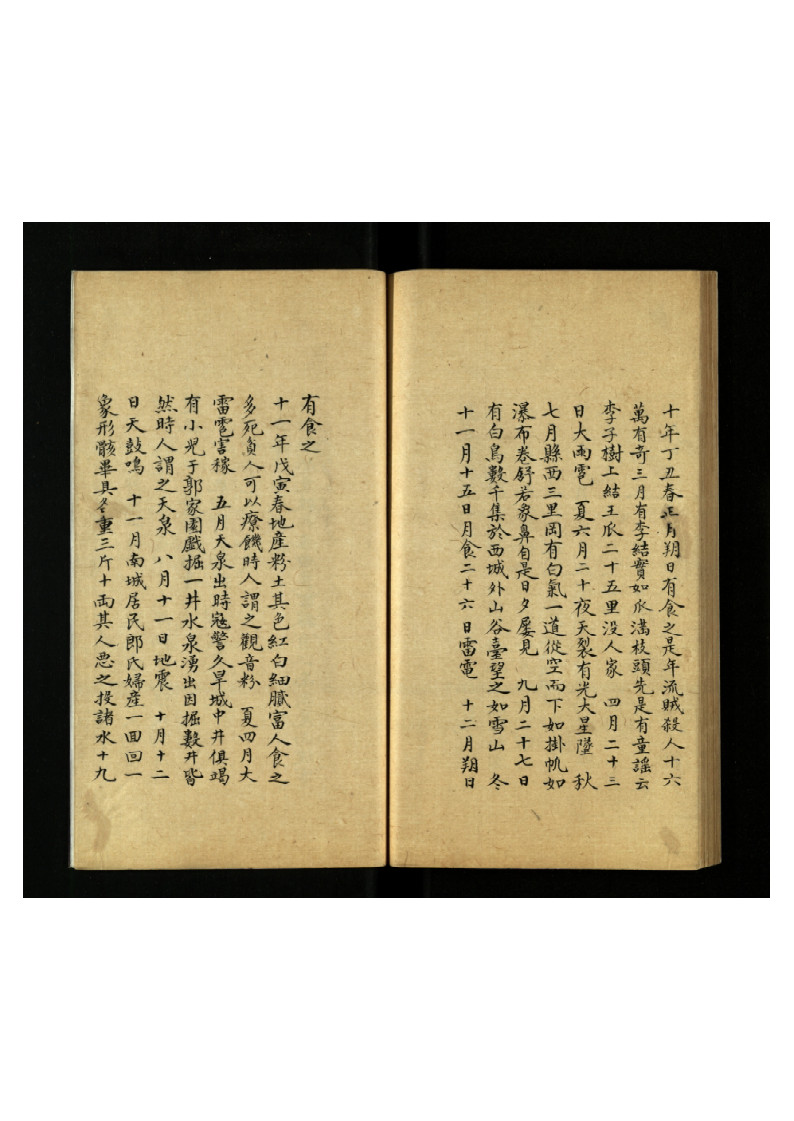 十年丁丑春正月朔日有食之是年流賊殺人十六
萬有奇三月有李結實如瓜滿枝頭先是有童謠云
李子樹上結王瓜二十五里没人家　四月二十三
日大雨雹　夏六月二十夜天裂有光大星墜　秋
七月縣西三里岡有白氣一道從空而下如掛帆如
瀑布卷舒若象鼻自是日夕屢見　九月二十七日
有白鳥數千集於西城外山谷臺望之如雪山　冬
十一月十五日月食二十六日雷電　十二月朔日
有食之
十一年戊寅春地產粉土其色紅白細膩富人食之
多死貧人可以療饑時人謂之觀音粉　夏四月大
雷雹害稼　五月天泉出時寇警久旱城中井俱竭
有小兒于郭家園戲掘一井水泉湧出因掘數井皆
然時人謂之天泉　八月十一日地震　十月十二
日天鼓鳴　十一月南城居民郎氏婦產一面回一
象形骸畢具冬重三斤十兩其人惡之投諸水十九